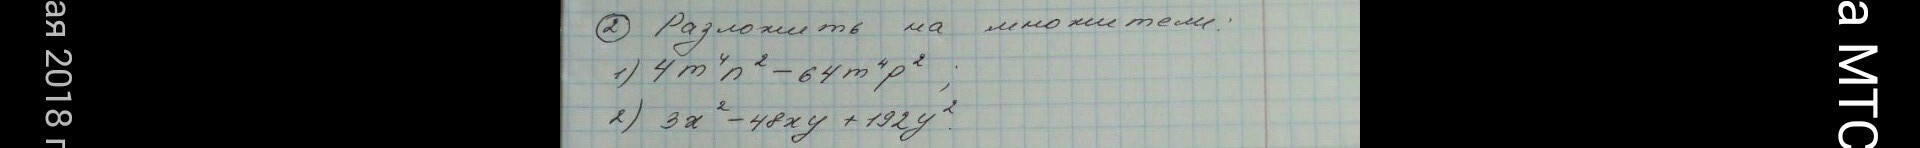 ая 2018 г
② Разложить на множители:
1) 4m⁴n² - 64m⁴p²;
2) 3x² - 48xy + 192y².
а МТС